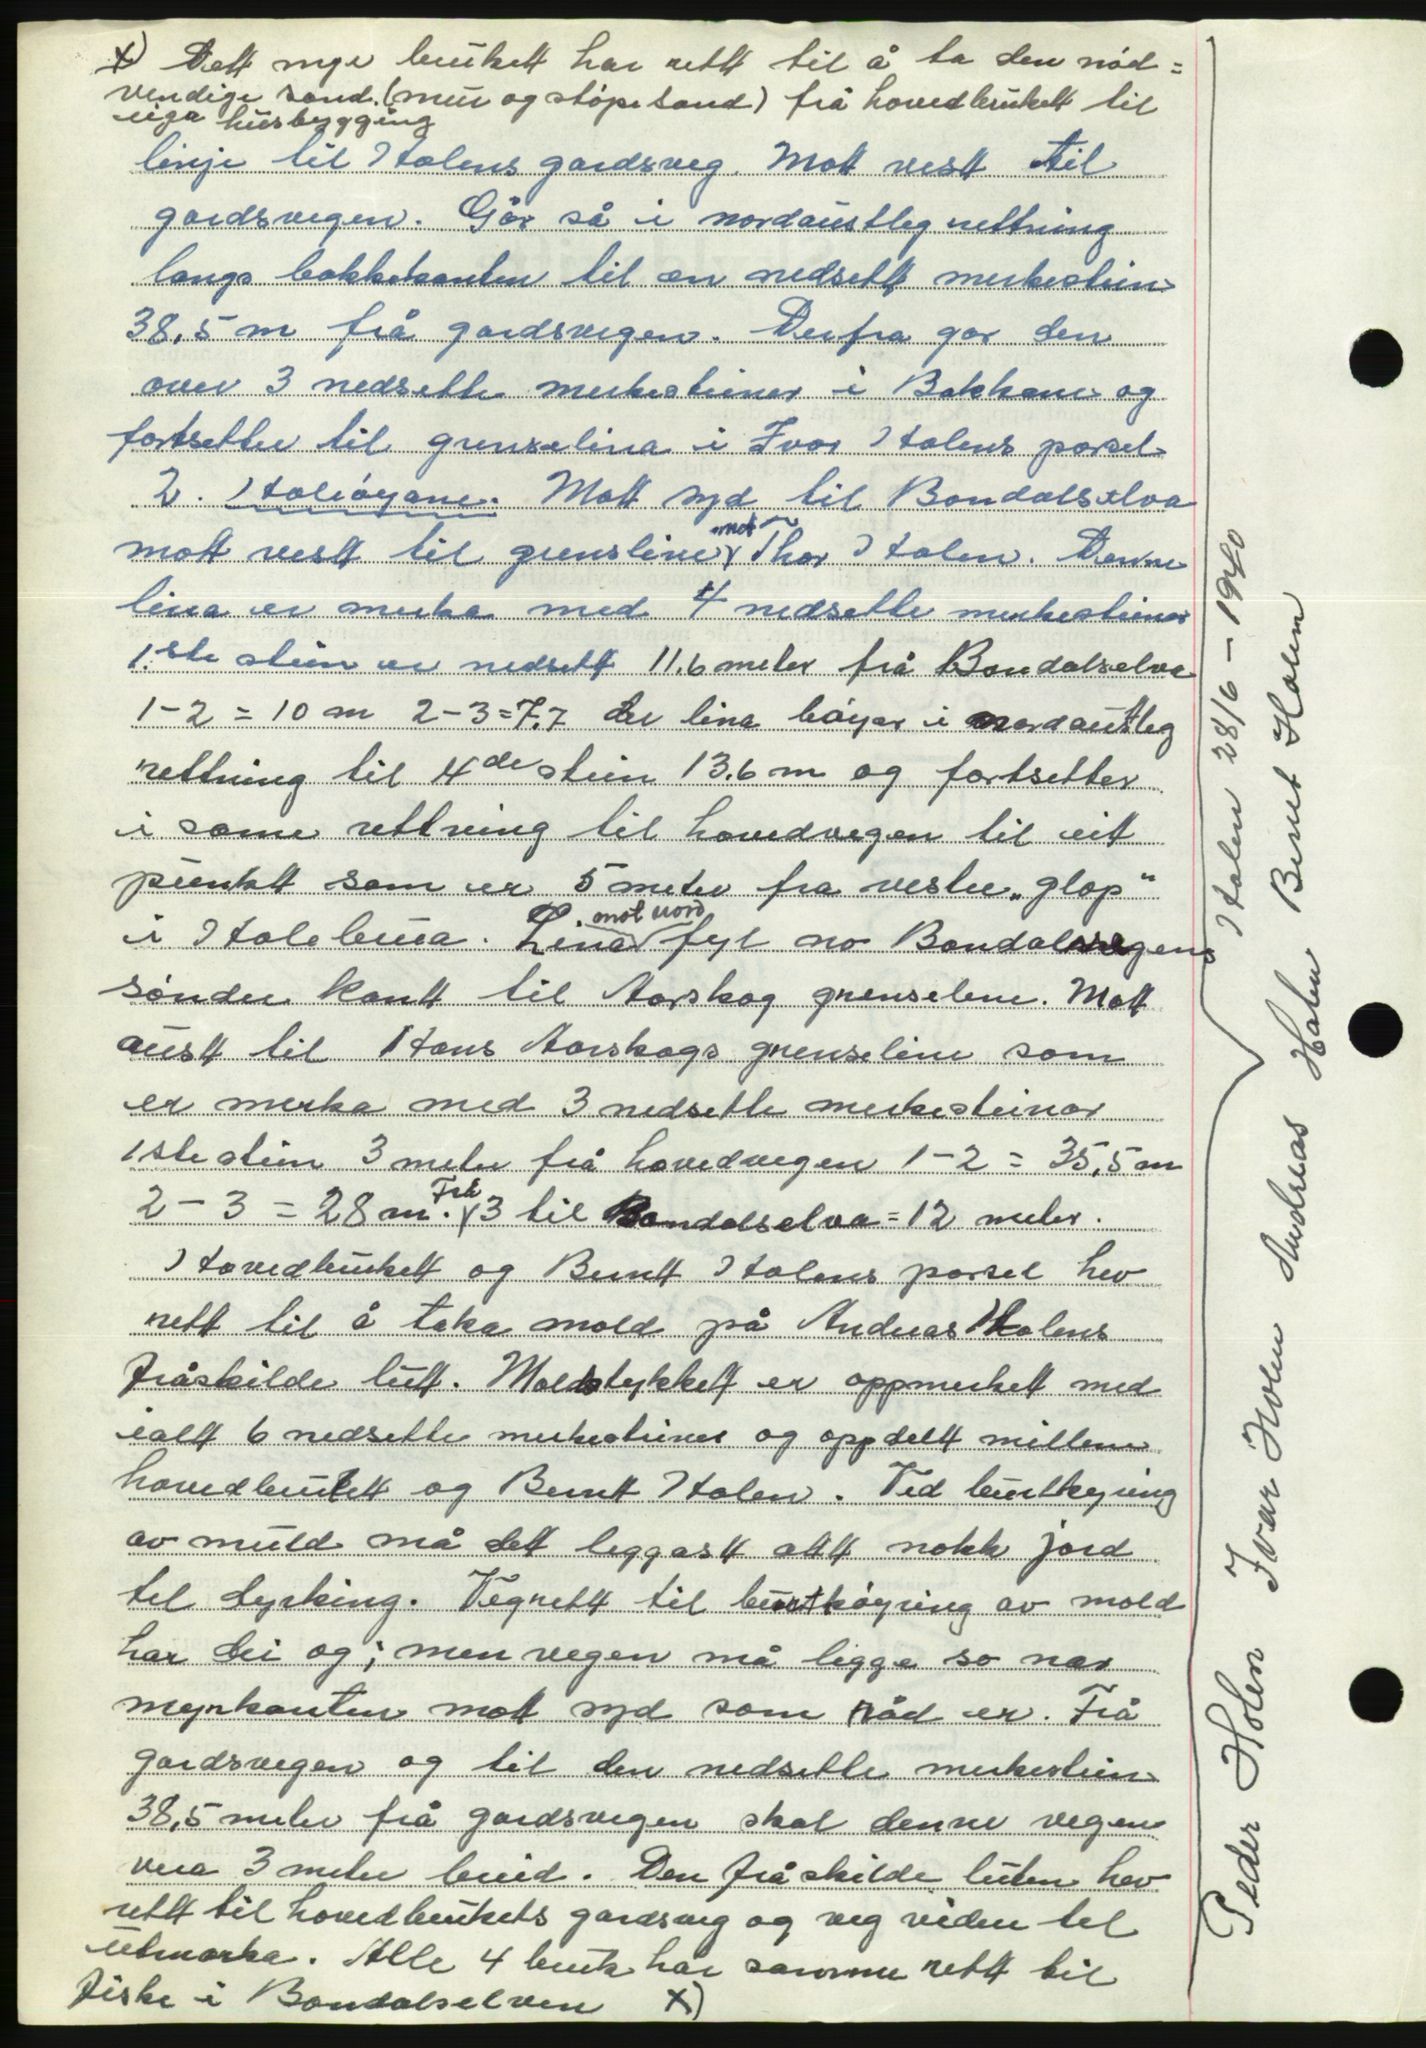 x) Dett nye bruket har rett til å ta den nød=
vendige sand. (mur og støpesand) frå hovedbruket til
eiga husbygging
linje til Holens gardsveg. Mott vestt til
gardsvegen. Går så i nordaustleg rettning
langs bakkekanten til en nedsett merkestein
38,5 m frå gardsvegen. Derfra gar den
over 3 nedsette merkesteiner i Bakkane og
fortsetter til grenselina i Ivar Holens parsel
2. Holeøyane. Mott syd til Bondalselva
mott vestt til grensline mot Thor Holen. Denne
lina er merka med 4 nedsette merkesteinar
1.ste stein er nedsett 11.6 meter frå Bondalselva
1-2 = 10 m 2-3 = 7,7 der lina bøyer i nordaustleg
rettning til 4de stein 13.6 m og fortsetter
i same rettning til hovedvegen til eit
punktt som er 5 meter fra vestre „glop"
i Holebrua. Lina mot nord fyl no Bondalsvegens
søndre kantt til Aarskog grenseline. Mott
austt til Hans Aarskogs grenseline som
er merka med 3 nedsette merkesteinar
1ste stein 3 meter frå hovedvegen 1-2 = 35,5 m
2-3 = 28 m. Frå 3 til Bondalselva = 12 meter.
Hovedbrukett og Berntt Holens parsel hev
rett til å taka mold på Andreas Holens
fråskilde lutt. Moldstykkett er oppmerkett med
ialtt 6 nedsette merkesteiner og oppdeltt millem
hovedbrukett og Berntt Holen. Ved burtkøyring
av muld må dett leggastt attt nokk jord
tel dyrking. Vegrett til burtkøyring av mold
har dei og; men vegen må ligge so nær
myrkanten mott syd som råd er. Frå
gardsvegen og til den nedsette merkestein
38,5 meter frå gardsvegen skal denne vegen
vera 3 meter breid. Den fråskilde luten hev
rett til hovedbrukets gardsveg og veg viden tel
utmarka. Alle 4 bruk har samme rett til
fiske i Bondalselven x)
Holen 28/6 - 1940
Peder Holen Ivar Holen Andreas Holen Bernt Holen